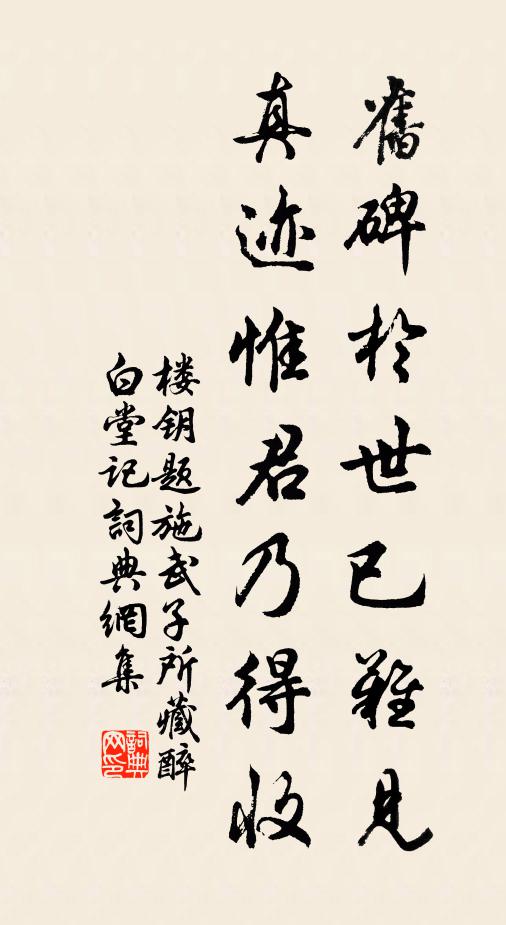 舊碑於世已難見
真迹惟君乃得收
楼钥题施武子所藏醉
白堂记詞典網集
詞典
网印